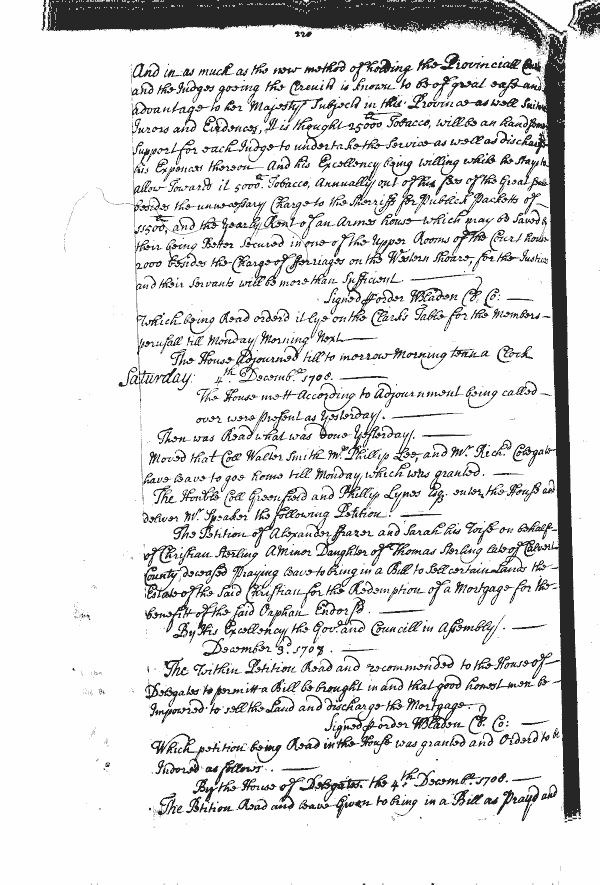 220
And in as much as the new method of holding the Provinciall
and the Judges goeing the Circuit is known to be of great ease and
advantage to her Majestys Subjects in this Province as well Suitors
Jurors and Evidences, It is thought 25000 Tobacco, will be an handsome
Support for each Judge to undertake the Service as well as discharge
his Expences thereon And his Excellency being willing while he stays to
allow Toward it 5000 Tobacco, Annually out of his fees of the Great Seale
besides the unnecessary Charge to the Sherriffs for Publick Packetts of
11500, and the Yearly Rent of an Armes house which may be Saved &
their being Better Secured in one of the Upper Rooms of the Court house
2000 besides the Charge of fferriages on the Western Shoare, for the Justices
and their Servants will be more than Sufficient
Signed p order W Bladen Cl. Co:
Which being Read orderd it lye on the Clarks Table for the Members
perusall till Monday Morning Next
The House Adjourned till to morrow Morning tenn a Clock
Saturday 4th Decembr 1708.
The House mett According to Adjournment being called
over were present as Yesterday.
Then was Read what was done Yesterday.
Moved that Coll Walter Smith Mr Phillip Lee, and Mr Richd Colegate
have leave to goe home till Monday which was granted.
The Honble Coll Greenfield and Phillip Lynes Esq. enter the House and
deliver Mr Speaker the following Petition
The Petition of Alexander ffrazer and Sarah his Wife on behalf
of Christian Sterling A Minor Daughter of Thomas Sterling late of Calvert
County, deceased Praying leave to bring in a Bill to Sell certain Lands the
Estate of the Said Christian for the Redemption of a Mortgage for the
benefitt of the said Orphan Endorsd.
By His Excellency the Govr and Councill in Assembly.
December 3d 1708.
The Within Petition Read and recommended to the House of
Delegates to permitt a Bill be brought in and that good honest men be
Impowred to sell the Land and discharge the Mortgage.
Signed p order W Bladen Cl. Co:
Which petition being Read in the House was granted and Orderd to be
Indored as follows
By the House of Delegates. the 4th Decembr 1708.
The Petition Read and leave Given to bring in a Bill as Prayd and